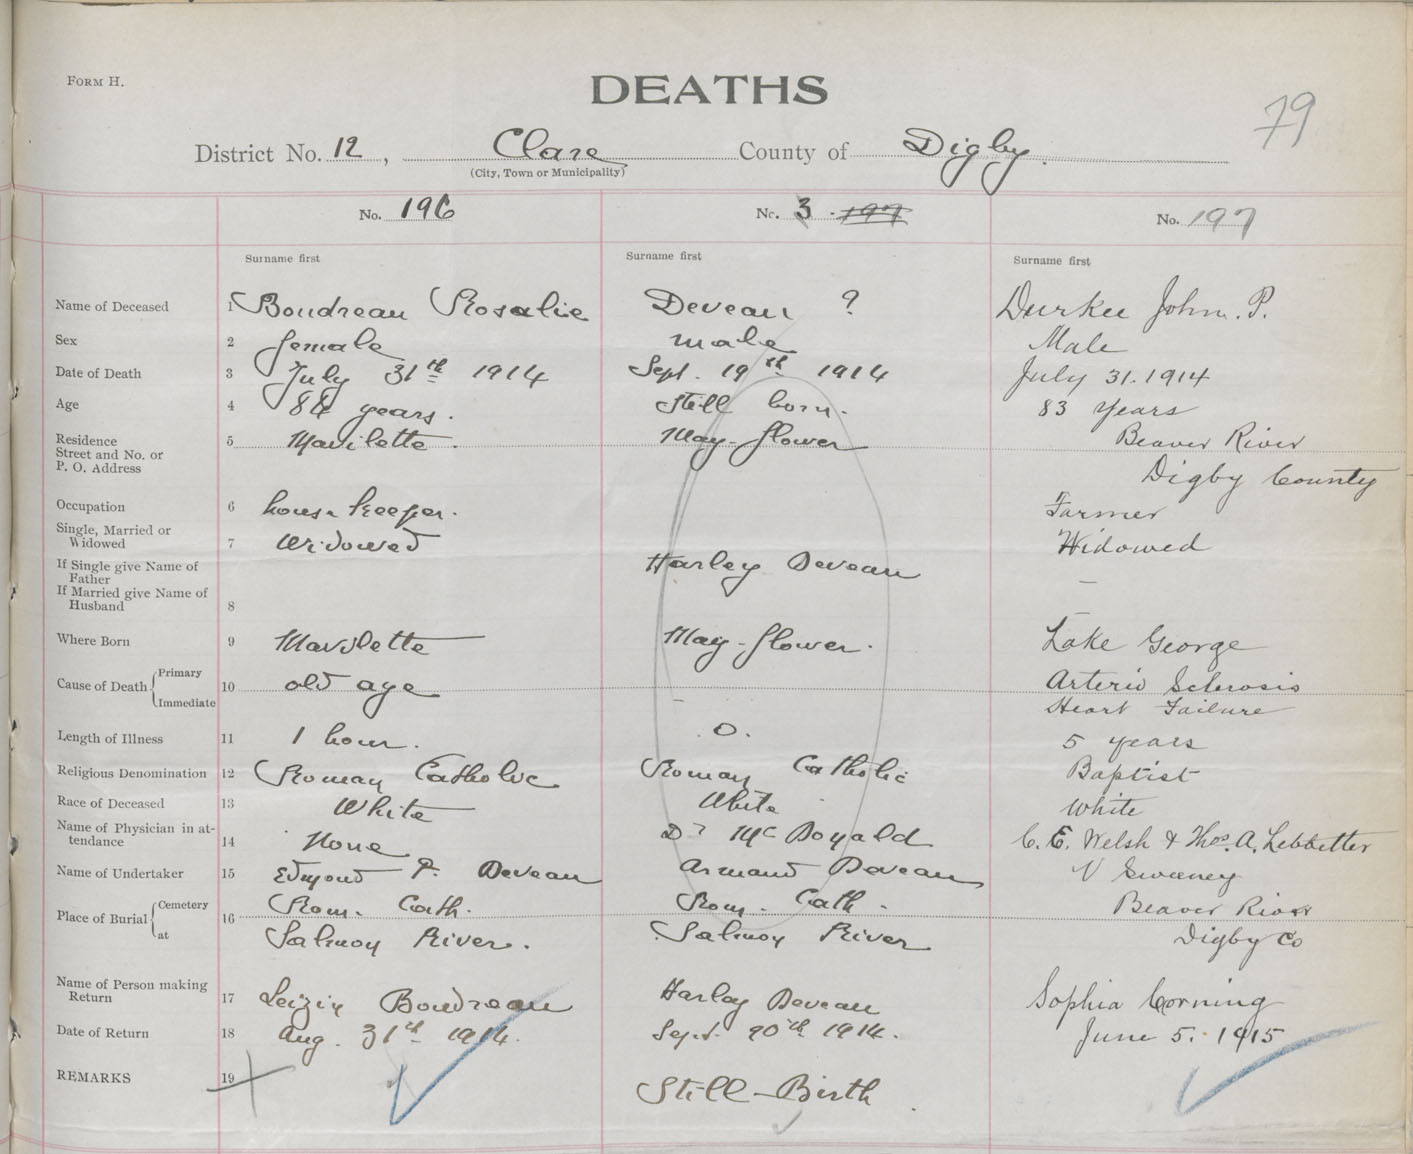 FORM H.
DEATHS
79
District No. 12, Clare County of Digby.
(City, Town or Municipality)
No. 196 No. 3 197 No. 197
Surname first Surname first Surname first
Name of Deceased 1 Boudreau Rosalie Deveau ? Durkee John. P.
Sex 2 female male Male
Date of Death 3 July 31th 1914 Sept. 19th 1914 July 31. 1914
Age 4 84 years. Still born. 83 Years
Residence 5 Mavilette. May-flower Beaver River
Street and No. or
P. O. Address Digby County
Occupation 6 house keeper. Farmer
Single, Married or
Widowed 7 Widowed Widowed
If Single give Name of
Father Harley Deveau —
If Married give Name of
Husband 8
Where Born 9 Mavilette May-flower. Lake George
Cause of Death Primary 10 old age Arterio Sclerosis
Immediate - Heart Failure
Length of Illness 11 1 hour. 0. 5 years
Religious Denomination 12 Roman Catholic Roman Catholic Baptist
Race of Deceased 13 White White White
Name of Physician in at-
tendance 14 None Dr McDonald C. E. Welsh & Thos. A. Lebbetter
Name of Undertaker 15 Edmond P. Deveau Armand Deveau V Sweeney
Place of Burial Cemetery 16 Rom. Cath. Rom. Cath. Beaver River
at Salmon River. Salmon River Digby Co
Name of Person making
Return 17 Boudreau Harley Deveau Sophia Corning
Date of Return 18 Aug. 31th 1914. Sept. 20th 1914. June 5. 1915
REMARKS 19 Still-Birth.